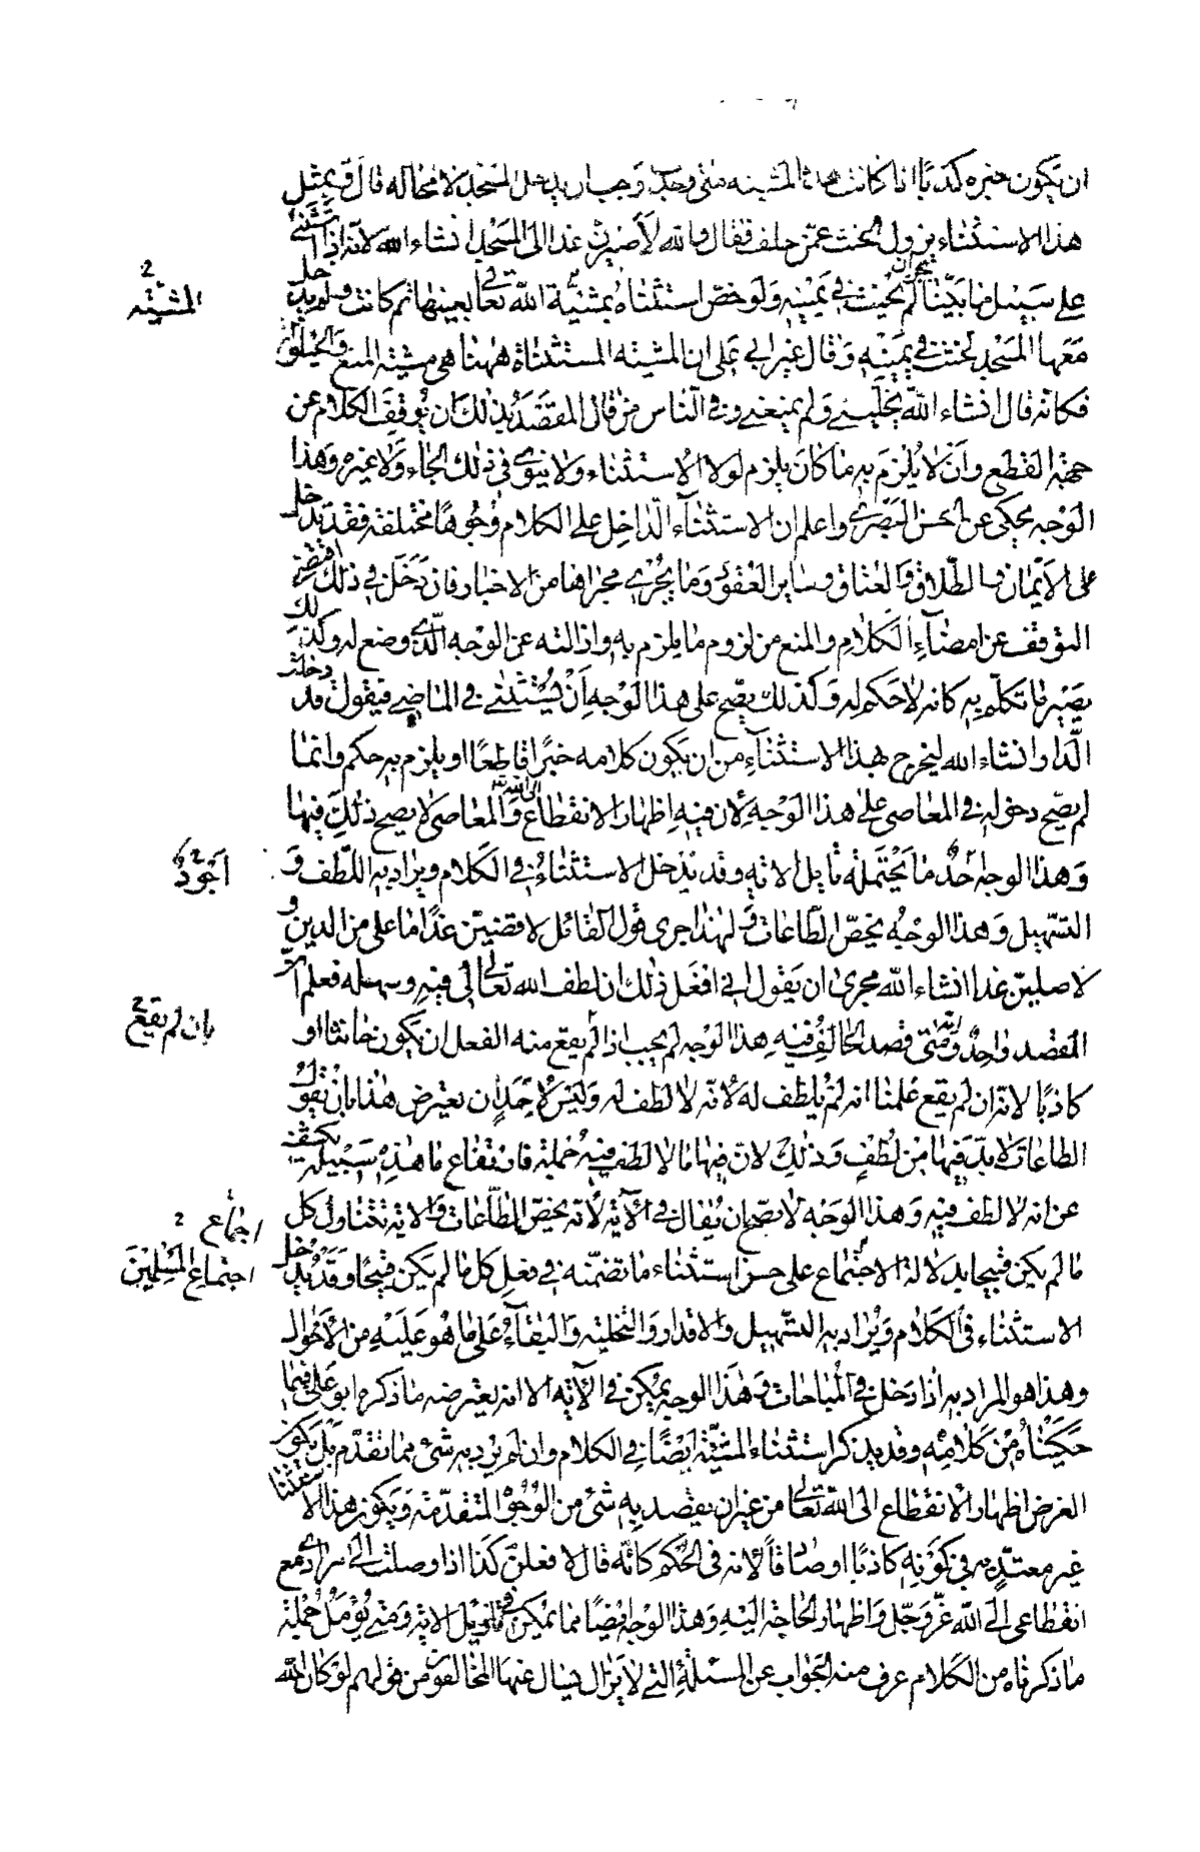 ان يكون خبره كذبا اذا كانت هذه المشيته متى وجدت وجب ان يدخل المسجد لا محالة قال و بمثل
هذا الاستثناء يزول الحنث عمّن حلف فقال والله لأصيرن غدا الى المسجد انشاء الله لانه اذا استثنى
على سبيل ما بيّنا لم يجز ان يحنث في يمينه ولو خصّ استثناه بمشيّة الله تعالى بعينها ثم كانت ولم يدخل
المشيّته
معها المسجد لحنث في يمينه وقال غير ابي علي ان المشيته المستثناة ههنا هى مشيته المنع والحيلولة
فكانه قال انشاء الله يخلّينى ولم يمنعنى وفى الناس من قال المقصد بذلك ان يوقف الكلام عن
جهة القطع وان لا يلزم به ما كان يلزم لولا الاستثناء ولا ينوى في ذلك الجاء ولا غيره وهذا
الوجه يحكى عن الحسن البصرى واعلم ان الاستثناء الداخل على الكلام وجوها مختلفة فقد يدخل
على الايمان والطلاق والعتاق وساير العقود وما يجرى مجراها من الاخبار فان دخل في ذلك اقتضى
التوقف عن امضاء الكلام والمنع من لزوم ما يلزم به وازالته عن الوجه الّذى وضع له وكذلك
يصير ما تكلّم به كانه لا حكم له وكذلك يصح على هذا الوجه أن يستثنى فى الماضى فيقول قد دخلت
الدار انشاء الله ليخرج بهذا الاستثناء من ان يكون كلامه خبرا قاطعا او يلزم به حكم وانما
لم يصحّ دخوله فى المعاصى على هذا الوجه لأن فيه إظهار الانقطاع الى الله والمعاصى لا يصح ذلك فيها
وهذا الوجه احد ما يحتمله تاويل الاية وقد يدخل الاستثناء فى الكلام ويراد به اللطف و
اجود
التسهيل وهذا الوجه يخصّ الطاعات ولهذا جرى قول القائل لاقضينّ غدا ما على من الدين و
لاصلينّ غدا انشاء الله مجرى ان يقول انى افعل ذلك ان لطف الله تعالى لى فيه وسهله فعلم ان
المقصد واحد وانه متى قصد الحالف فيه هذا الوجه لم يجب اذا لم يقع منه الفعل ان يكون حانثا او
بان لم يقع
كاذبا لانه ان لم يقع علمنا انه لم يلطف له لأنه لا لطف له وليس لاحد ان يعترض هذا بان يقول
الطاعات لا بدّ فيها من لطف وذلك لان فيها ما لا لطف فيه جملة فارتفاع ما هذه سبيله يكشف
عن انه لا لطف فيه وهذا الوجه لا يصح ان يقال فى الآية لأنه يخصّ الطاعات والاية تتناول كل
اجماع
ما لم يكن قبيحا بدلالة الاجتماع على حسن استثناء ما تضمّنه فى فعل كل ما لم يكن قبيحا وقد يدخل
اجتماع المسلمين
الاستثناء فى الكلام ويراد به التسهيل والاقدار والتخلية والبقاء على ما هو عليه من الأحوال
وهذا هو المراد به اذا دخل فى المباحات وهذا الوجه يمكن فى الآية الا انه يعترضه ما ذكره ابو على فيما
حكيناه من كلامه وقد يذكر استثناء المشيّة ايضا فى الكلام وان لم يرد به شئ مما تقدّم بل يكون
الغرض اظهار الانقطاع الى الله تعالى من غير ان يقصد به شئ من الوجوه المتقدّمة ويكون هذا الاستثناء
غير معتدّ به فى كونه كاذبا او صادقا لانه فى الحكم كانّه قال لافعلنّ كذا اذا وصلت الى مرادى مع
انقطاعى الى الله عزّ وجلّ واظهار الحاجة اليه وهذا الوجه ايضا مما يمكن فى تاويل الاية ومتى تؤمّل جملة
ما ذكرناه من الكلام عرف منه الجواب عن المسئلة التى لا يزال يسال عنها المخالفون من قولهم لو كان الله